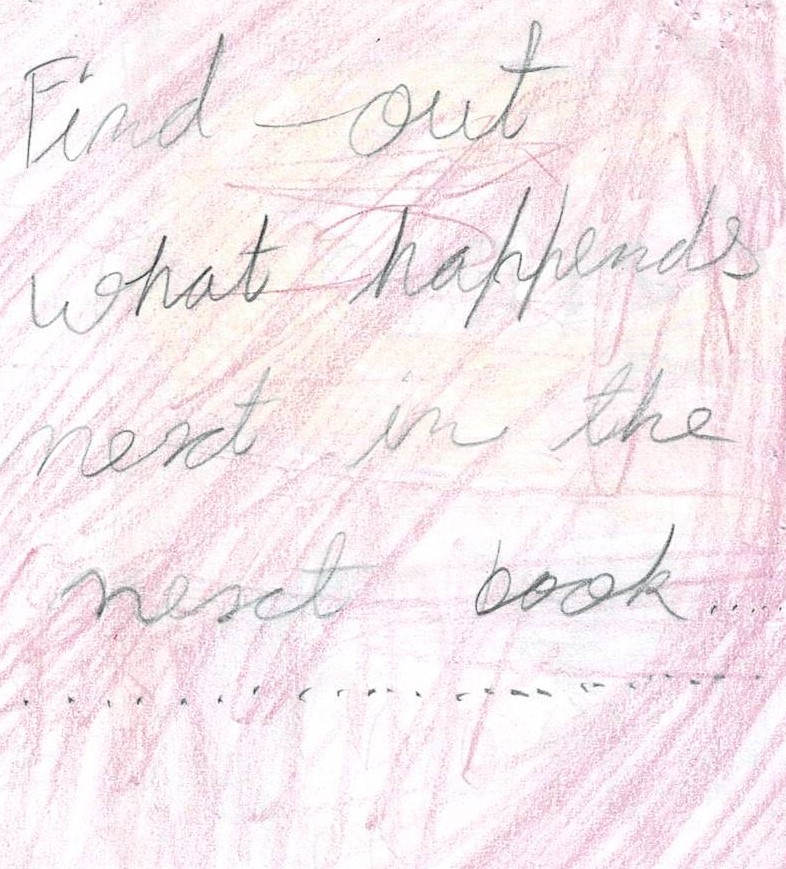 Find out
what happends
next in the
next book.....
....................................